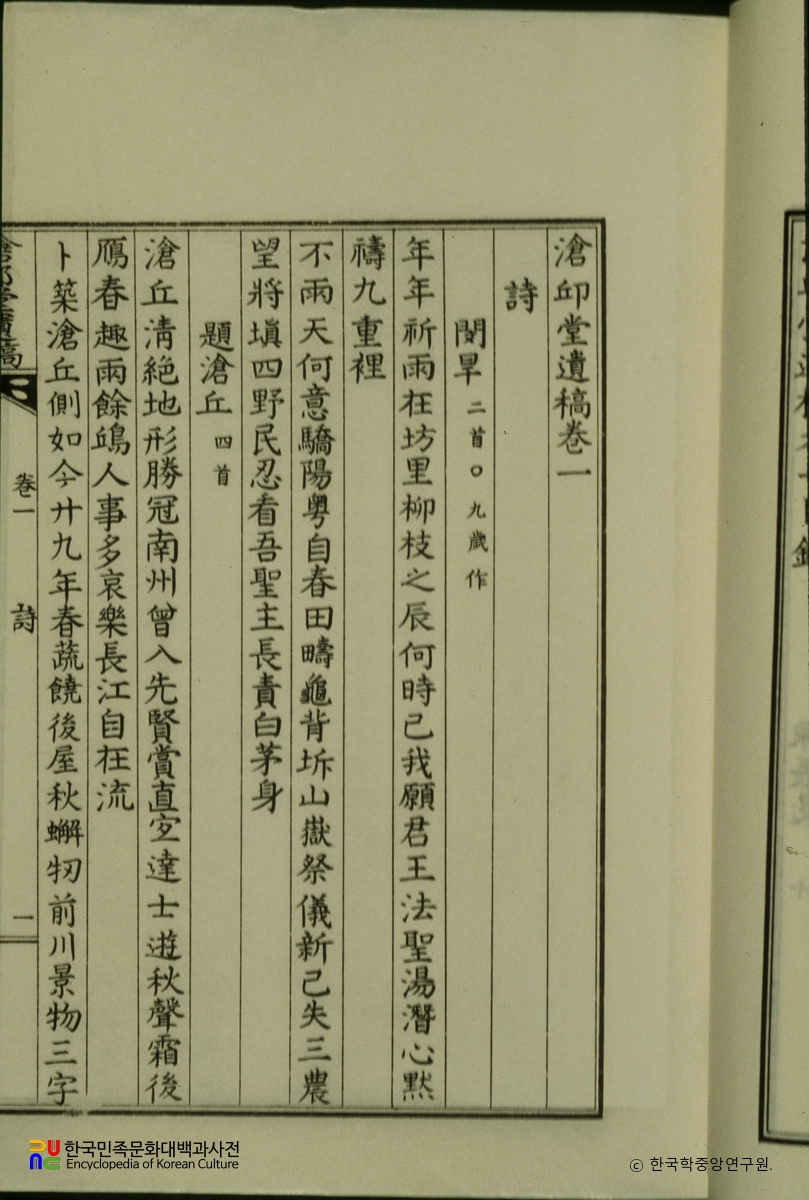 滄邱堂遺稿卷一
詩
閔旱 二首○九歲作
年年祈雨在坊里柳枝之辰何時已我願君王法聖湯潛心黙
禱九重裡
不雨天何意驕陽粤自春田疇龜背坼山嶽祭儀新已失三農
望將塡四野民忍看吾聖主長責白茅身
題滄丘 四首
滄丘淸絶地形勝冠南州曾入先賢賞直宜達士遊秋聲霜後
鴈春趣雨餘鳩人事多哀樂長江自在流
卜築滄丘側如今廿九年春蔬饒後屋秋蠏牣前川景物三字
卷一
詩
一
한국민족문화대백과사전
Encyclopedia of Korean Culture
ⓒ 한국학중앙연구원.